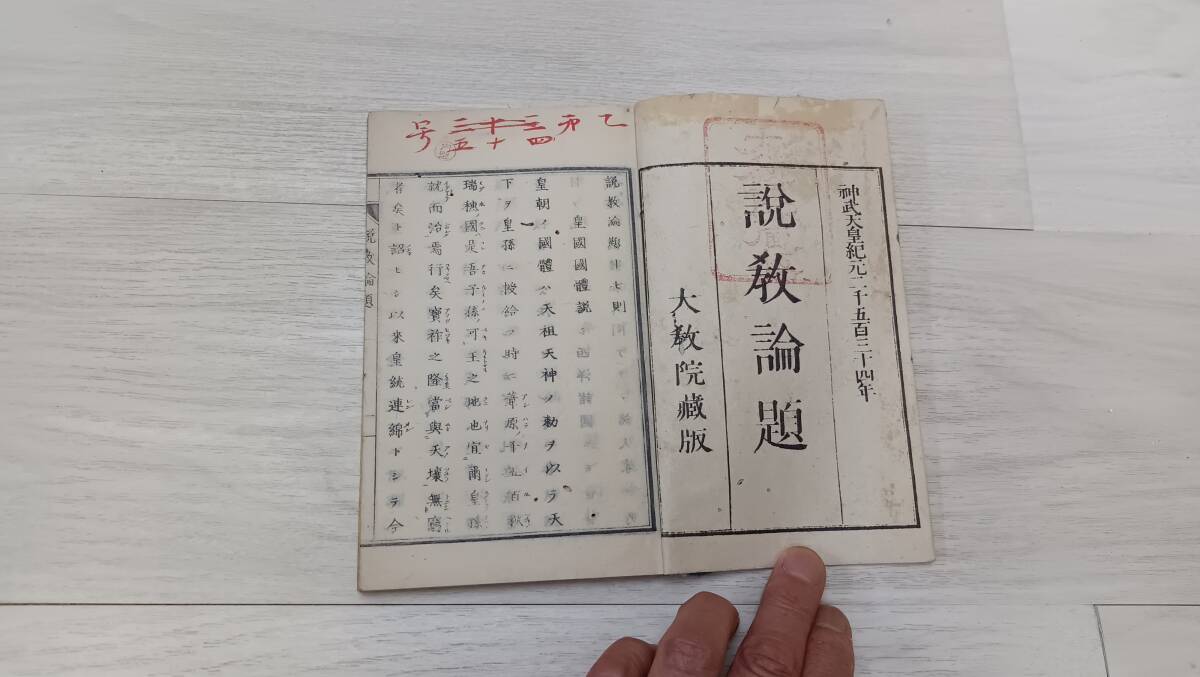 神武天皇紀元二千五百三十四年
說敎論題
大敎院藏版
乙㐧三十三号
四十五
說教論題十七則
皇國國體說
皇朝ノ國體ハ天祖天神ノ勅ヲ以テ天
下ヲ皇孫ニ授給フ時ニ葦原千五百秋
瑞穗國是吾子孫可王之地也宜爾皇孫
就而治焉行矣寶祚之隆當與天壤無窮
者矣ト詔ヒシ以来皇統連綿トシテ今
說教論題